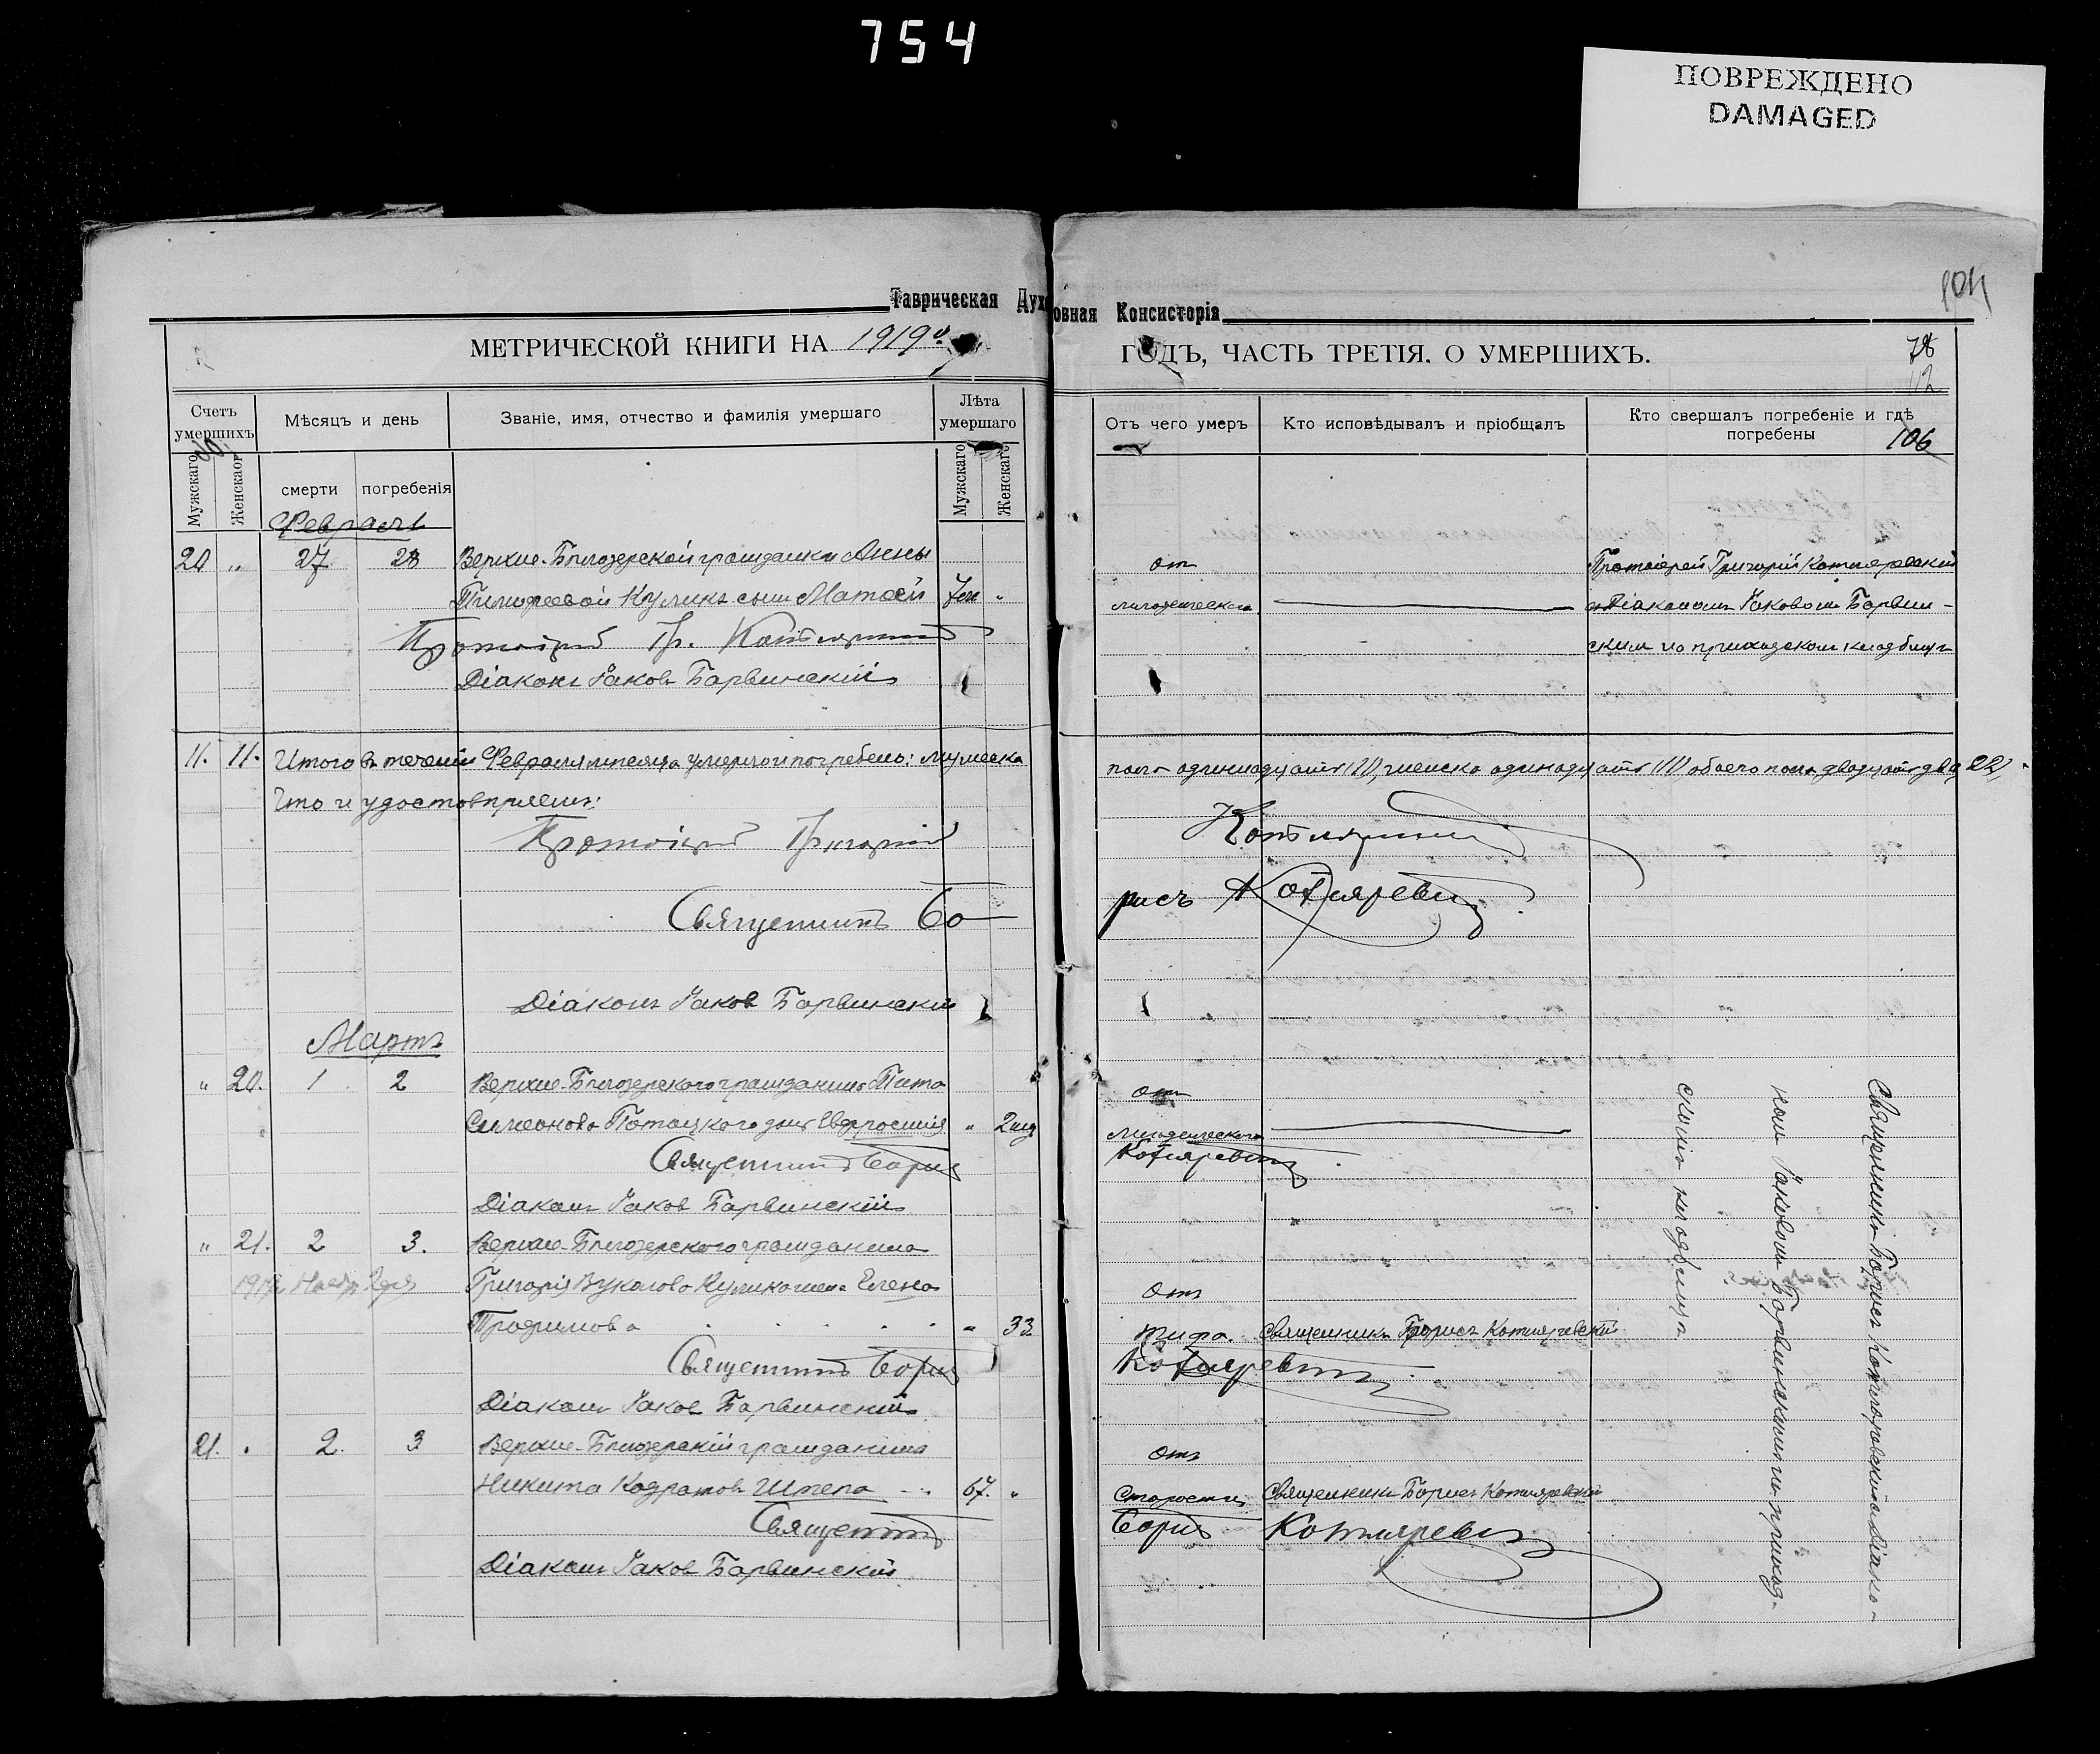 754
ПОВРЕЖДЕНО
DAMAGED
104
Таврическая Духовная Консисторія
МЕТРИЧЕСКОЙ КНИГИ НА 1919й
ГОДЪ, ЧАСТЬ ТРЕТІЯ. О УМЕРШИХЪ.
78
112
106
Счетъ умершихъ
Мѣсяцъ и день
Званіе, имя, отчество и фамилія умершаго
Лѣта умершаго
Отъ чего умеръ
Кто исповѣдывалъ и пріобщалъ
Кто свершалъ погребеніе и гдѣ погребены
Мужскаго
Женскаго
смерти
погребенія
Мужскаго
Женскаго
Февраль
20 " 27 28 Верхне-Бѣлозерской гражданки Анны
отъ
Протоіерей Григорій Котляревскій
Тимофеевой Куликъ сынъ Матѳей
съ Діакономъ Іаковомъ Барвин-
Протоіерей Гр. Котляревскій
скимъ на приходскомъ кладбищѣ
Діаконъ Іаковъ Барвинскій
11. 11. Итого въ теченіи Февраля мѣсяца умерло и погребено: мужеска
пола одиннадцать (11), женска одинадцать (11) обоего пола двадцать два (22).
Что и удостовѣряемъ:
Протоіерей Григорій Котляревскій
Священникъ Борисъ Котляревскій
Діаконъ Іаковъ Барвинскій
Мартъ
" 20. 1 2 Верхне-Бѣлозерского гражданина Тита
отъ
Симеонова Потоцкого дочь Евфросинія " 2
Священникъ Борисъ Котляревскій
Діаконъ Іаковъ Барвинскій
" 21. 2 3. Верхне-Бѣлозерского гражданина
Григорія Вуколова Куликъ жена Елена
отъ
Трофимова " 33
тифа. Священникъ Борисъ Котляревскій
Священникъ Борисъ Котляревскій
Діаконъ Іаковъ Барвинскій
21. " 2. 3 Верхне-Бѣлозерскій гражданинъ
отъ
Никита Кодратовъ Штепа 67. "
старости Священникъ Борисъ Котляревскій
Священникъ Борисъ Котляревскій
Діаконъ Іаковъ Барвинскій
Священникъ Борисъ Котляревскій съ Діако-
номъ Іаковомъ Барвинскимъ на приход-
скомъ кладбищѣ